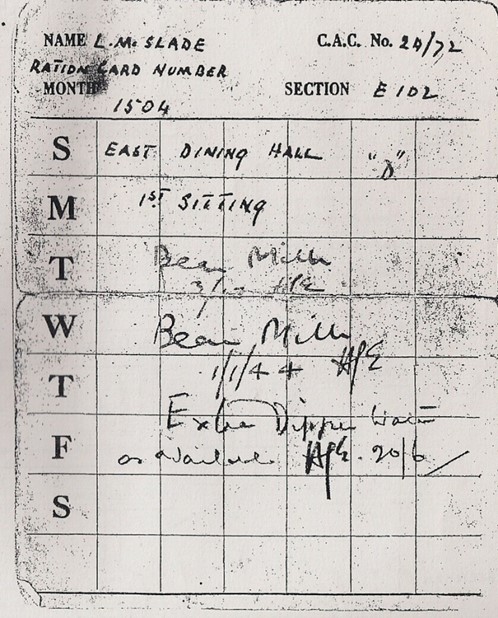 NAME L. M. SLADE C.A.C. No. 2D/72
RATION CARD NUMBER
MONTH SECTION E 102
1504
S EAST DINING HALL "D"
M 1ST SITTING
T Bean Milk
W Bean Milk
1/1/44 HE
T
Extra Dipper Water
F as Available HE. 20/6
S